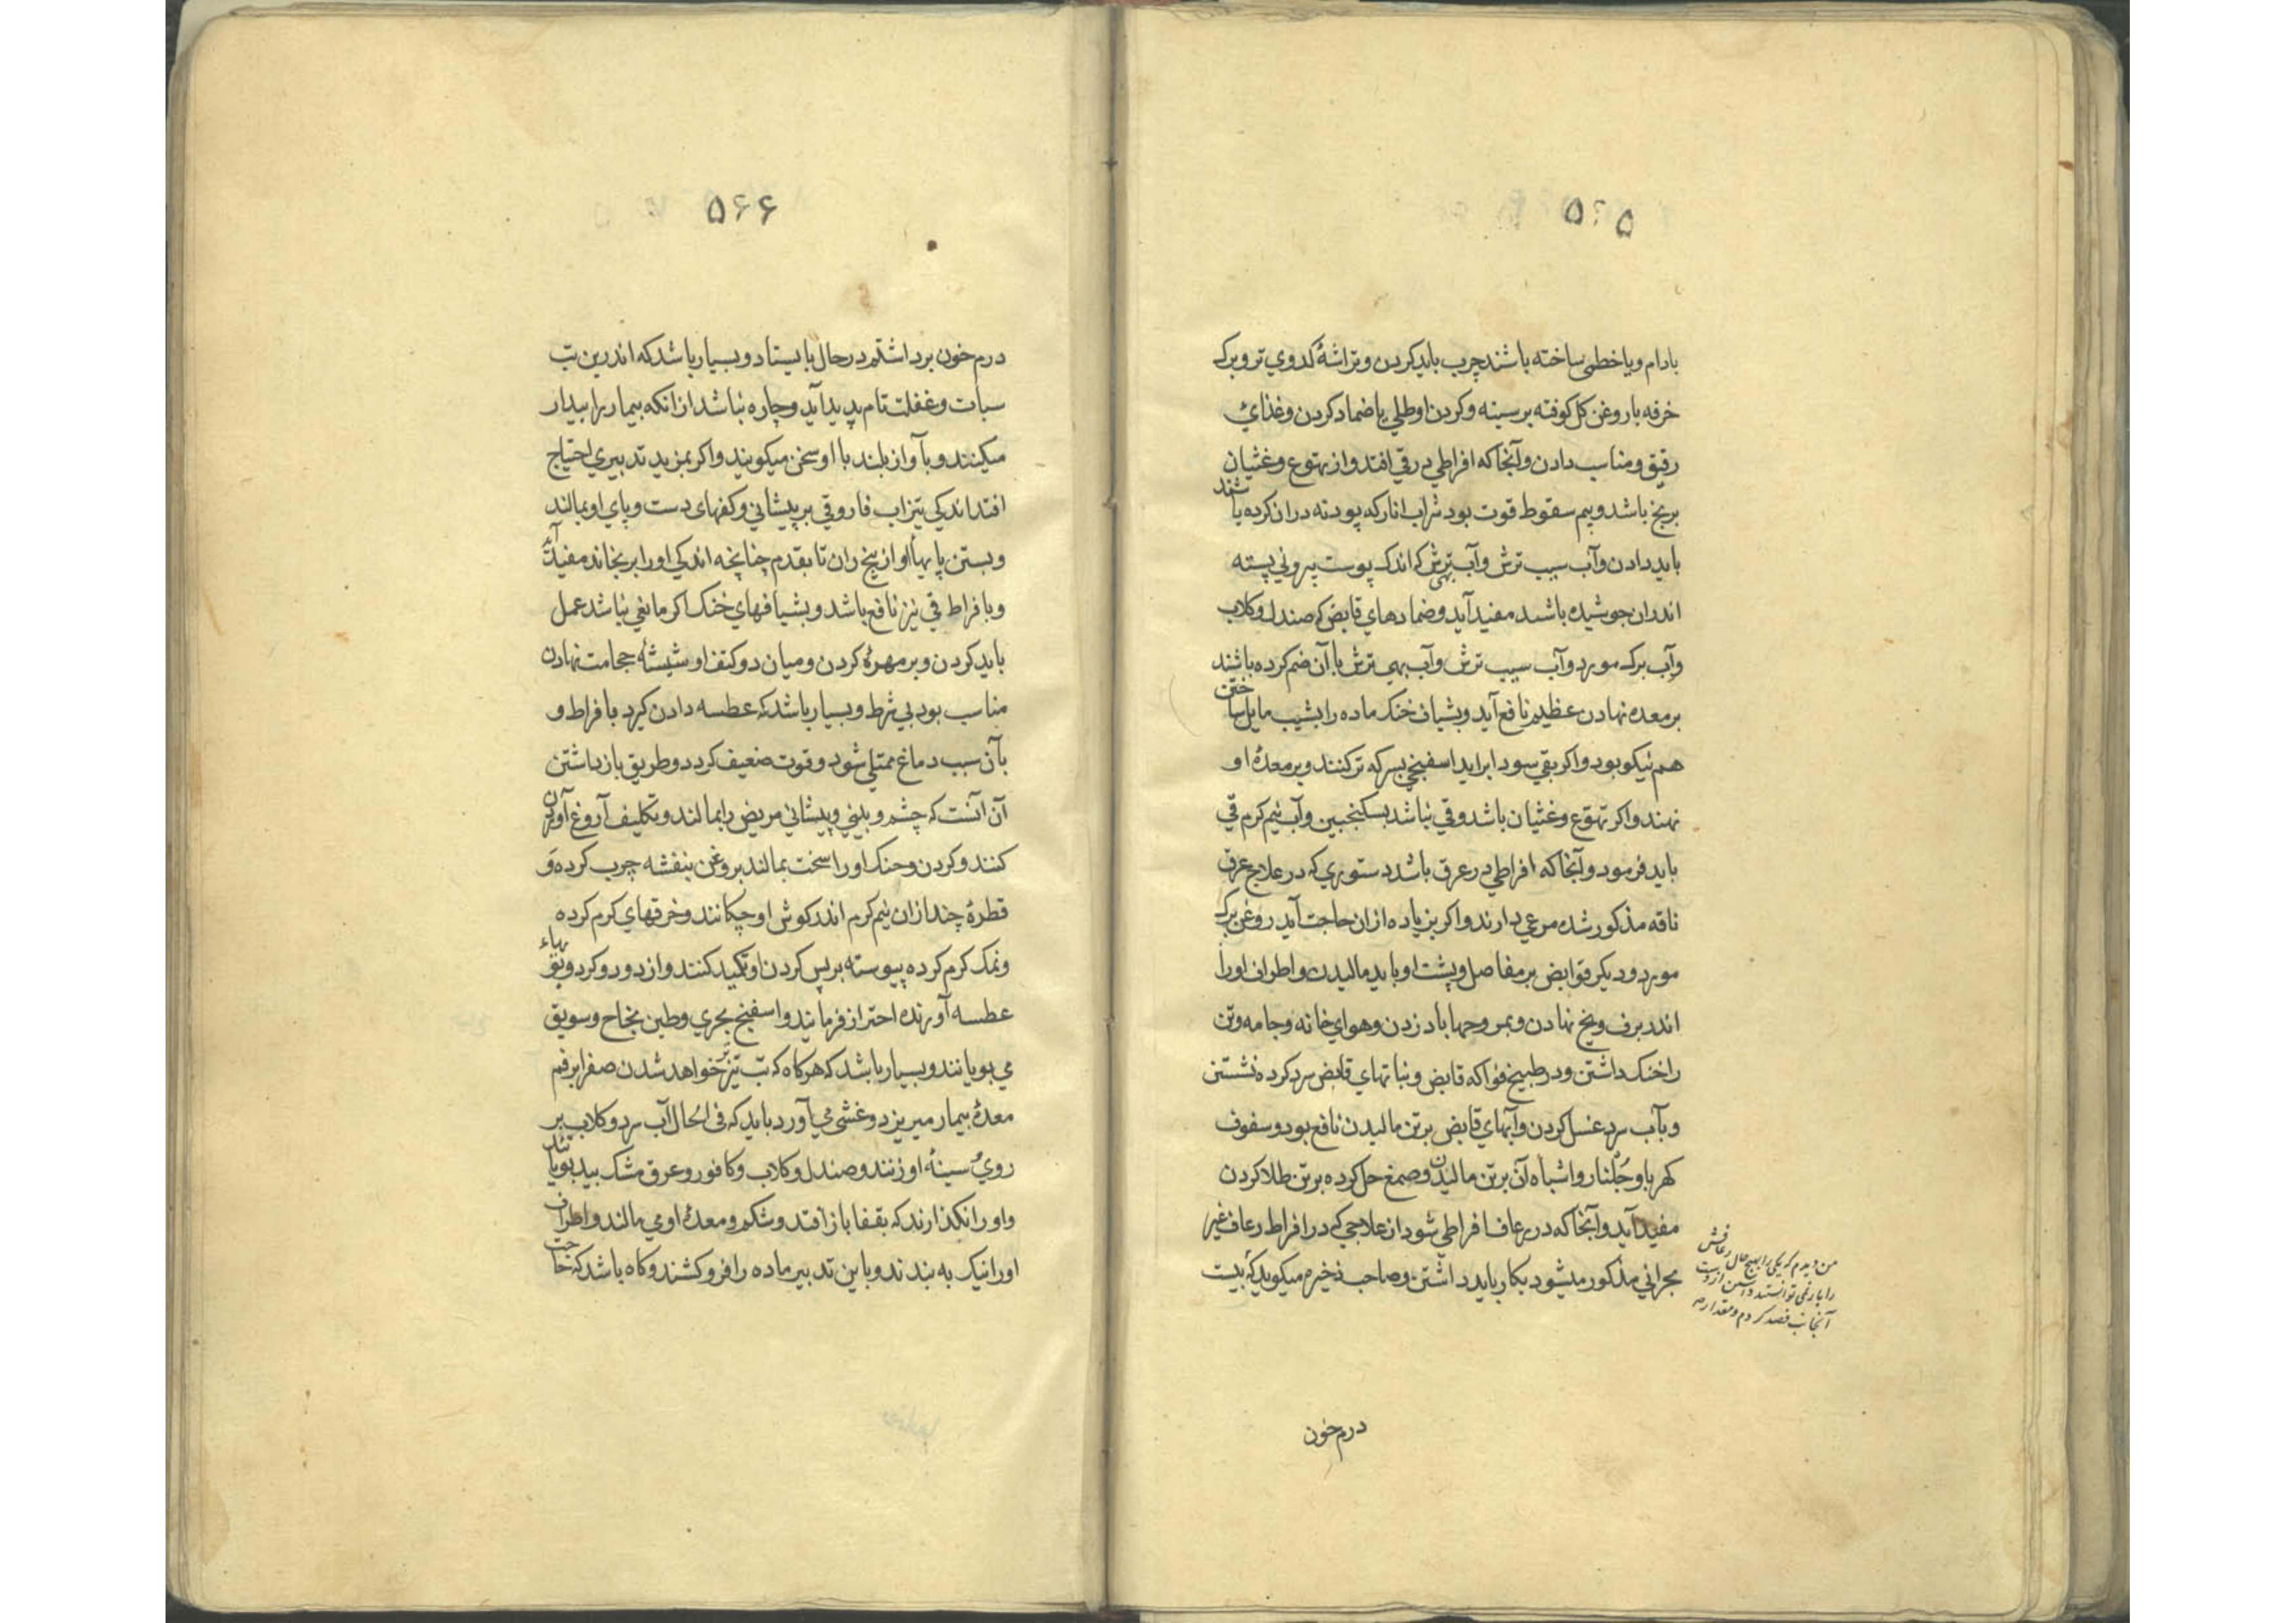 ۵۶۵
بادام و یا خطمی ساخته باشند چرب باید کردن و تراشهٔ کدوی تر و برک
خرفه با روغن کل کوفته بر سینه و کردن او طلی یا ضماد کردن و غذای
رقیق و مناسب دادن و آنجا که افراطی در قی افتد و از تهوع و غثیان
برنج باشد و بیم سقوط قوت بود شراب انار که پودنه در ان کرده باشند
باید دادن و آب سیب ترش و آب بهی ترش که اندک پوست بیرونی پسته
اندران جوشیده باشد مفید آید و ضمادهای قابض که صندل و کلاب
و آب برک مورد و آب سیب ترش و آب بهی ترش با آن ضم کرده باشند
بر معده نهادن عظیم نافع آید و بشیاف خنک ماده را بشیب مایل ساختن
هم نیکو بود و اکر بقی سودا براید اسفنجی بسرکه ترکنند و بر معدهٔ او
نهند و اکر تهوع و غثیان باشد و قی نباشد بسکنجبین و آب نیم کرم قی
باید فرمود و آنجا که افراطی در عرق باشد دستوری که در علاج عرق
ناقه مذکور شده مرعی دارند و اکر بزیاده ازان حاجت آید روغن برک
مورد و دیکر قوابض بر مفاصل و پشت او باید مالیدن و اطراف او را
اندر برف و یخ نهادن و بمروحها باد زدن و هوای خانه و جامه و تن
را خنک داشتن و در طبیخ فواکه قابض و نباتهای قابض سرد کرده نشستن
و بآب سرد غسل کردن و آبهای قابض بر تن مالیدن نافع بود و سفوف
کهربا و جلنار و اشباه آن بر تن مالیدن و صمغ حل کرده بر تن طلا کردن
مفید آید و آنجا که در رعاف افراطی شود از علاجی که در افراط رعاف غیر
بحرانی مذکور میشود بکار باید داشتن و صاحب ذخیره میکوید که بیست
من دیدم که یکی را بهیچ حال رعافش
را باز نمی توانستند داشتن از دست
آنجانب فصد کردم و مقدار صد
درم خون
۵۶۶
درم خون برداشتم در حال بایستاد و بسیار باشد که اندرین تب
سبات و غفلت تام پدید آید و چاره نباشد از انکه بیمار را بیدار
میکنند و بآواز بلند با او سخن میکویند و اکر بمزید تدبیری احتیاج
افتد اندکی تیزاب فاروقی بر پیشانی و کفهای دست و پای او بمالند
و بستن پایهاء او از بیخ ران تا بقدم چنانچه اندکی او را برنجاند مفید آید
و بافراط قی نیز نافع باشد و بشیافهای خنک اکر مانعی نباشد عمل
باید کردن و بر مهرهٔ کردن و میان دو کتف او شیشهٔ حجامت نهادن
مناسب بود بی شرط و بسیار باشد که عطسه دادن کیرد بافراط و
بآن سبب دماغ ممتلی شود و قوت ضعیف کردد و طریق بازداشتن
آن آنست که چشم و بینی و پیشانی مریض را بمالند و تکلیف آروغ آوردن
کنند و کردن و حنک او را سخت بمالند بروغن بنفشه چرب کرده و
قطرهٔ چند ازان نیم کرم اندر کوش او چکانند و خرقهای کرم کرده
و نمک کرم کرده پیوسته بر پس کردن او تکمید کنند و از دود و کرد و بویهاء
عطسه آورنده احتراز فرمایند و اسفنج بحری و طین بخاح و سویق
می بویانند و بسیار باشد که هرکاه که تب تیزتر خواهد شدن صفرا بر فم
معدهٔ بیمار میریزد و غشی می آورد باید که فی الحال آب سرد و کلاب بر
روی و سینهٔ او زنند و صندل و کلاب و کافور و عرق مشک بید بویانند
و او را نکذارند که بقفا باز افتد و شکم و معدهٔ او می مالند و اطراف
او را نیک به بندند و باین تدبیر ماده را فرو کشند و کاه باشد که حاجت